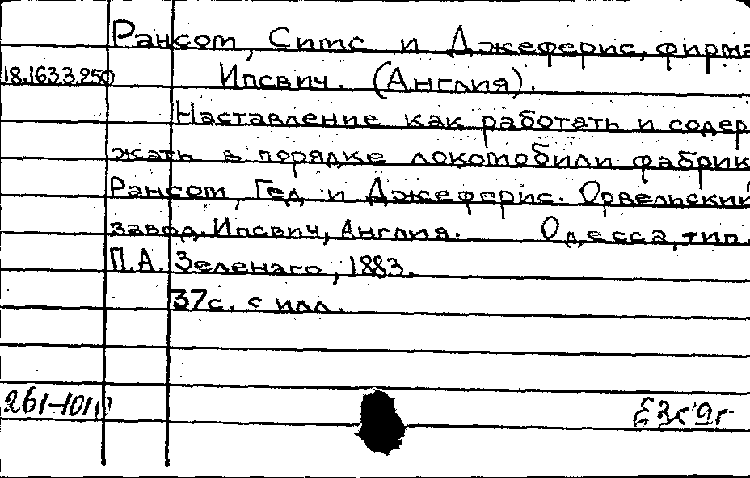 Рансом, Симс и Джеферис, фирма
18.163.3.250 Ипсвич. (Англия).
Наставление как работать и содер
жать в порядке локомобили фабрик
Рансом, Гед и Джеферис. Орвельский
завод. Ипсвич, Англия. Одесса, тип.
П.А. Зеленаго, 1883.
37с. с илл.
261-101